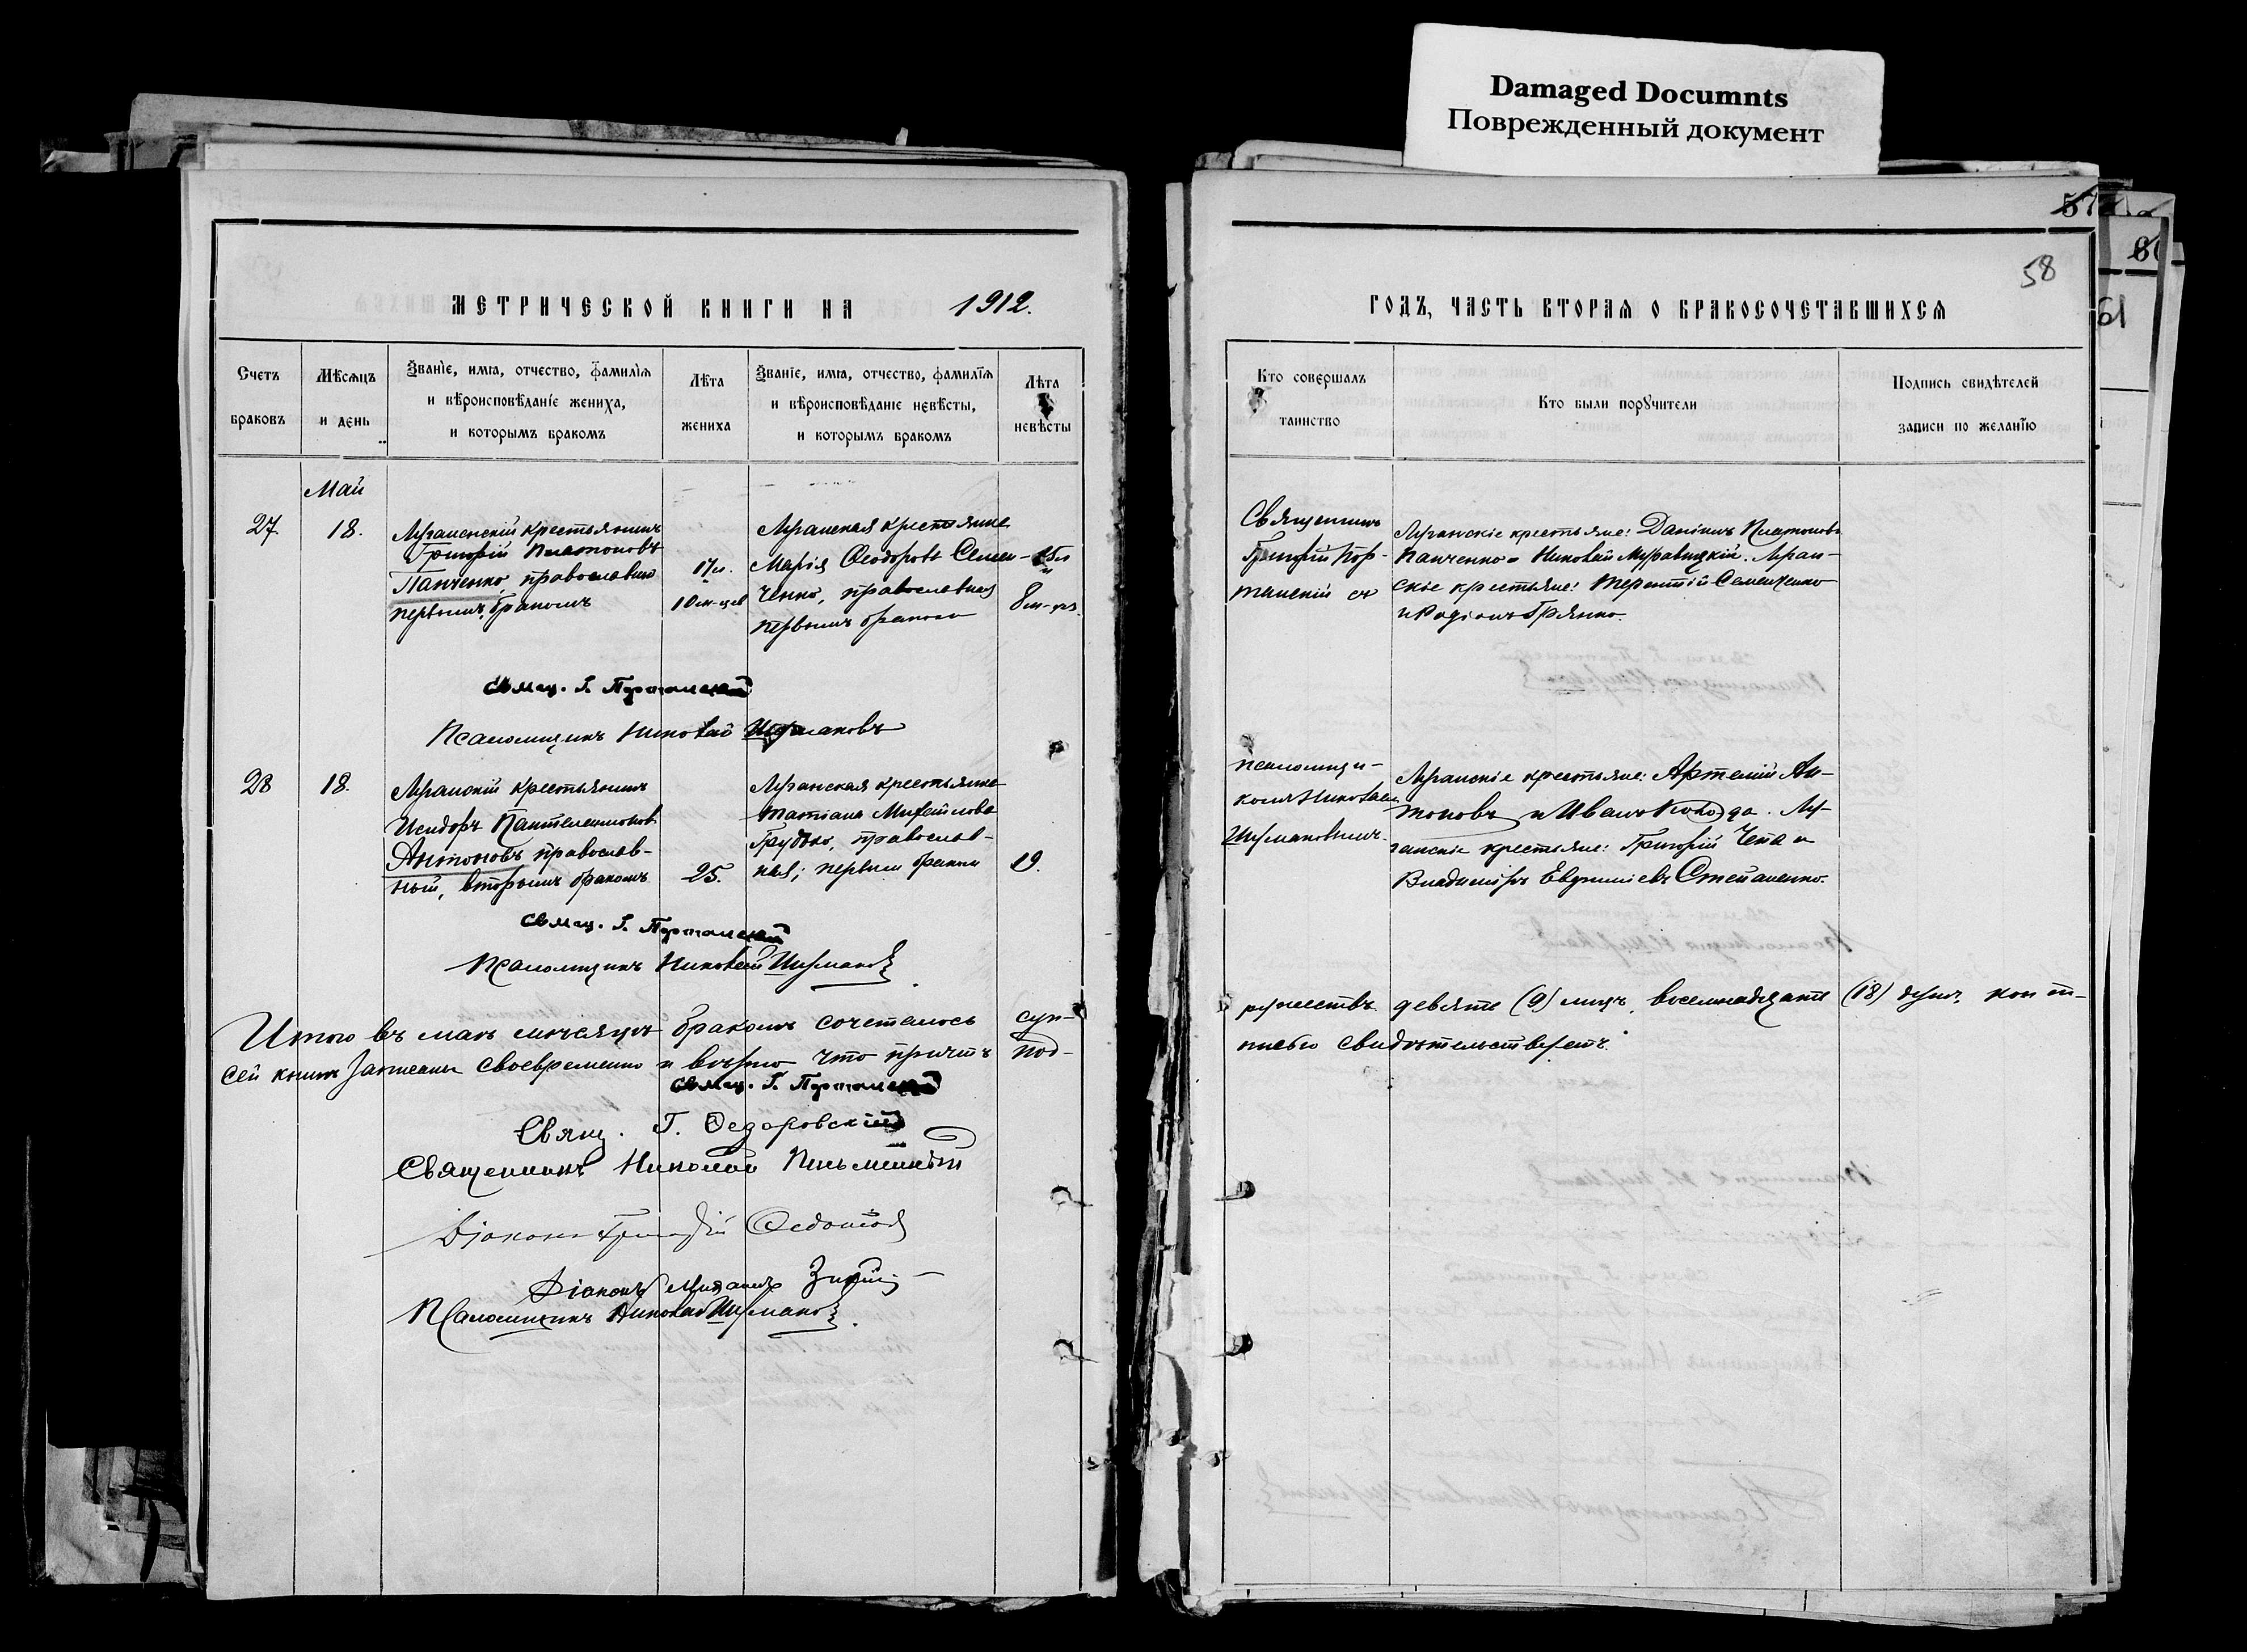 Damaged Documnts
Поврежденный документ
57
58
61
МЕТРИЧЕСКОЙ КНИГИ НА 1912.
ГОДЪ, ЧАСТЬ ВТОРАЯ О БРАКОСОЧЕТАВШИХСЯ
Счетъ браковъ
Мѣсяцъ и день
Званіе, имя, отчество, фамилія
и вѣроисповѣданіе жениха,
и которымъ бракомъ
Лѣта жениха
Званіе, имя, отчество, фамилія
и вѣроисповѣданіе невѣсты,
и которымъ бракомъ
Лѣта невѣсты
Кто совершалъ таинство
Кто были поручители
Подпись свидѣтелей
записи по желанію
Май
27. 18.
крестьянинъ
Григорій Платоновъ
Панченко, православный
первымъ бракомъ
17 л.
10 м-цев
Марія Ѳеодорова Семен-
ченко, православная
первымъ бракомъ
15 л
8 м-цъ.
Священникъ
Григорій Пор-
танскій съ
крестьяне: Даніилъ Платоновъ
Панченко и Николай Муравицкій.
скіе крестьяне: Терентій Семенченко
и Родіонъ
Свящ. Г. Портанскій
Псаломщикъ Николай Шурмановъ
28 18.
крестьянинъ
Исидоръ Пантелеимоновъ
Антоновъ православ-
ный, вторымъ бракомъ
25.
Татіана Михайлова
православ-
ная; первымъ бракомъ
19.
псаломщи-
комъ Николаемъ
Шурмановымъ.
крестьяне: Артемій Ан-
тоновъ и Иванъ Колода.
крестьяне: Григорій Чепа и
Владиміръ Евѳиміевъ Степаненко.
Свящ. Г. Портанскій
Псаломщикъ Николай Шурмановъ
Итого въ маѣ мѣсяцѣ бракомъ сочеталось суп-
ружествъ девять (9) лицъ, восемнадцать (18) душъ,
сей книги записаны своевременно и вѣрно что причтъ под-
писью свидѣтельствуетъ.
Свящ. Г. Портанскій
Свящ. Г. Ѳедоровскій
Священникъ Николай
Діаконъ Григорій Ѳедотов
Діаконъ Михаилъ
Псаломщикъ Николай Шурмановъ